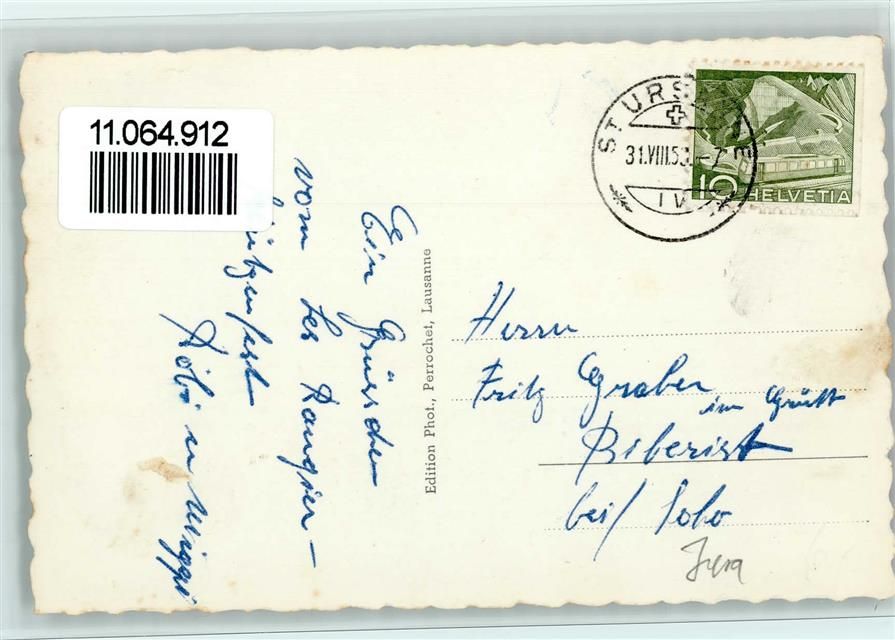 11.064.912
Ein Grüssche
vom Les Rangier-
Schützenfest
Köbi u Miggi
Edition Phot., Perrochet, Lausanne
ST URSANNE
31.VIII.53.-7
IV
10 HELVETIA
Herrn
Fritz Graber
im Grütt
Biberist
bei/ Solo
Jura